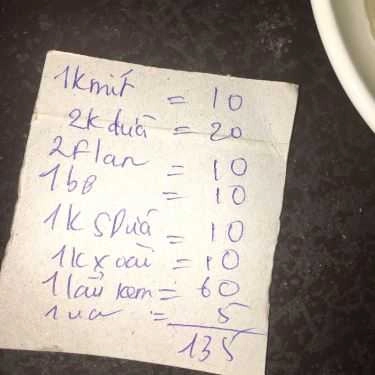 1K mít = 10
2K dừa = 20
2 flan = 10
1 bơ = 10
1K S Dừa = 10
1K xoài = 10
1 lẩu kem = 60
1 = 5
135